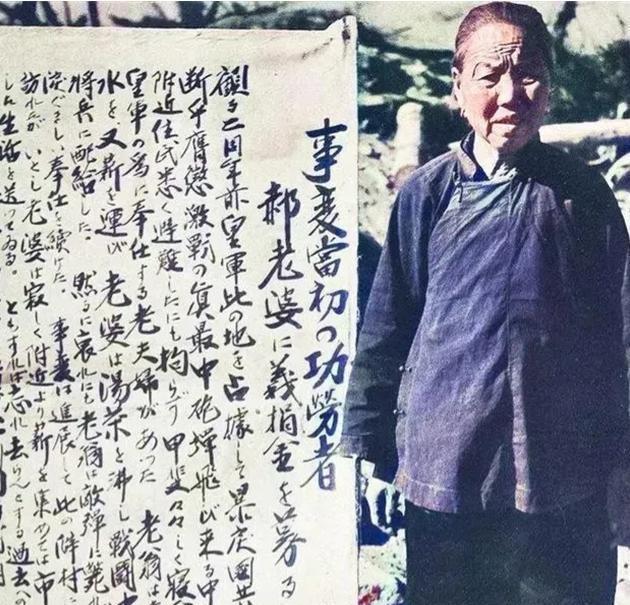 事変當初の功勞者
郝老婆に義捐金を募る
顧る二周年前皇軍此の地を占據して暴戻國共
断乎膺懲激戰の眞最中砲弾飛び来る中
附近住民悉く避難したにも拘らず甲斐々々しく寝
皇軍の爲に奉仕する老夫婦があった 老翁は
水を、又薪を運び 老婆は湯茶を沸し戰闘中
将兵に配給した。然るに哀れにも老翁は敵弾に斃れ
涙ぐましい奉仕を續けた。事変は進展して此の陣村
訪れたがいとし老婆は寂しく附近より薪を集めては市
しい生活を送ってゐる。ともすれば忘れ去らんとする過去への